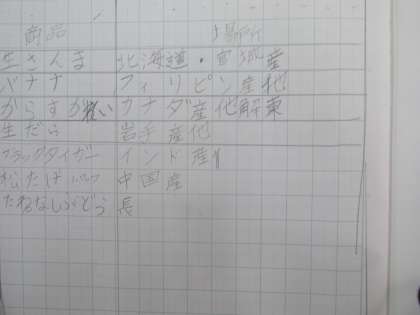 商品 場所
生さんま 北海道・宮城産
バナナ フィリピン産他
からすがれい カナダ産他解東
生だら 岩手産他
ブラックタイガー インド産
松たけ 中国産
たねなしぶどう 長